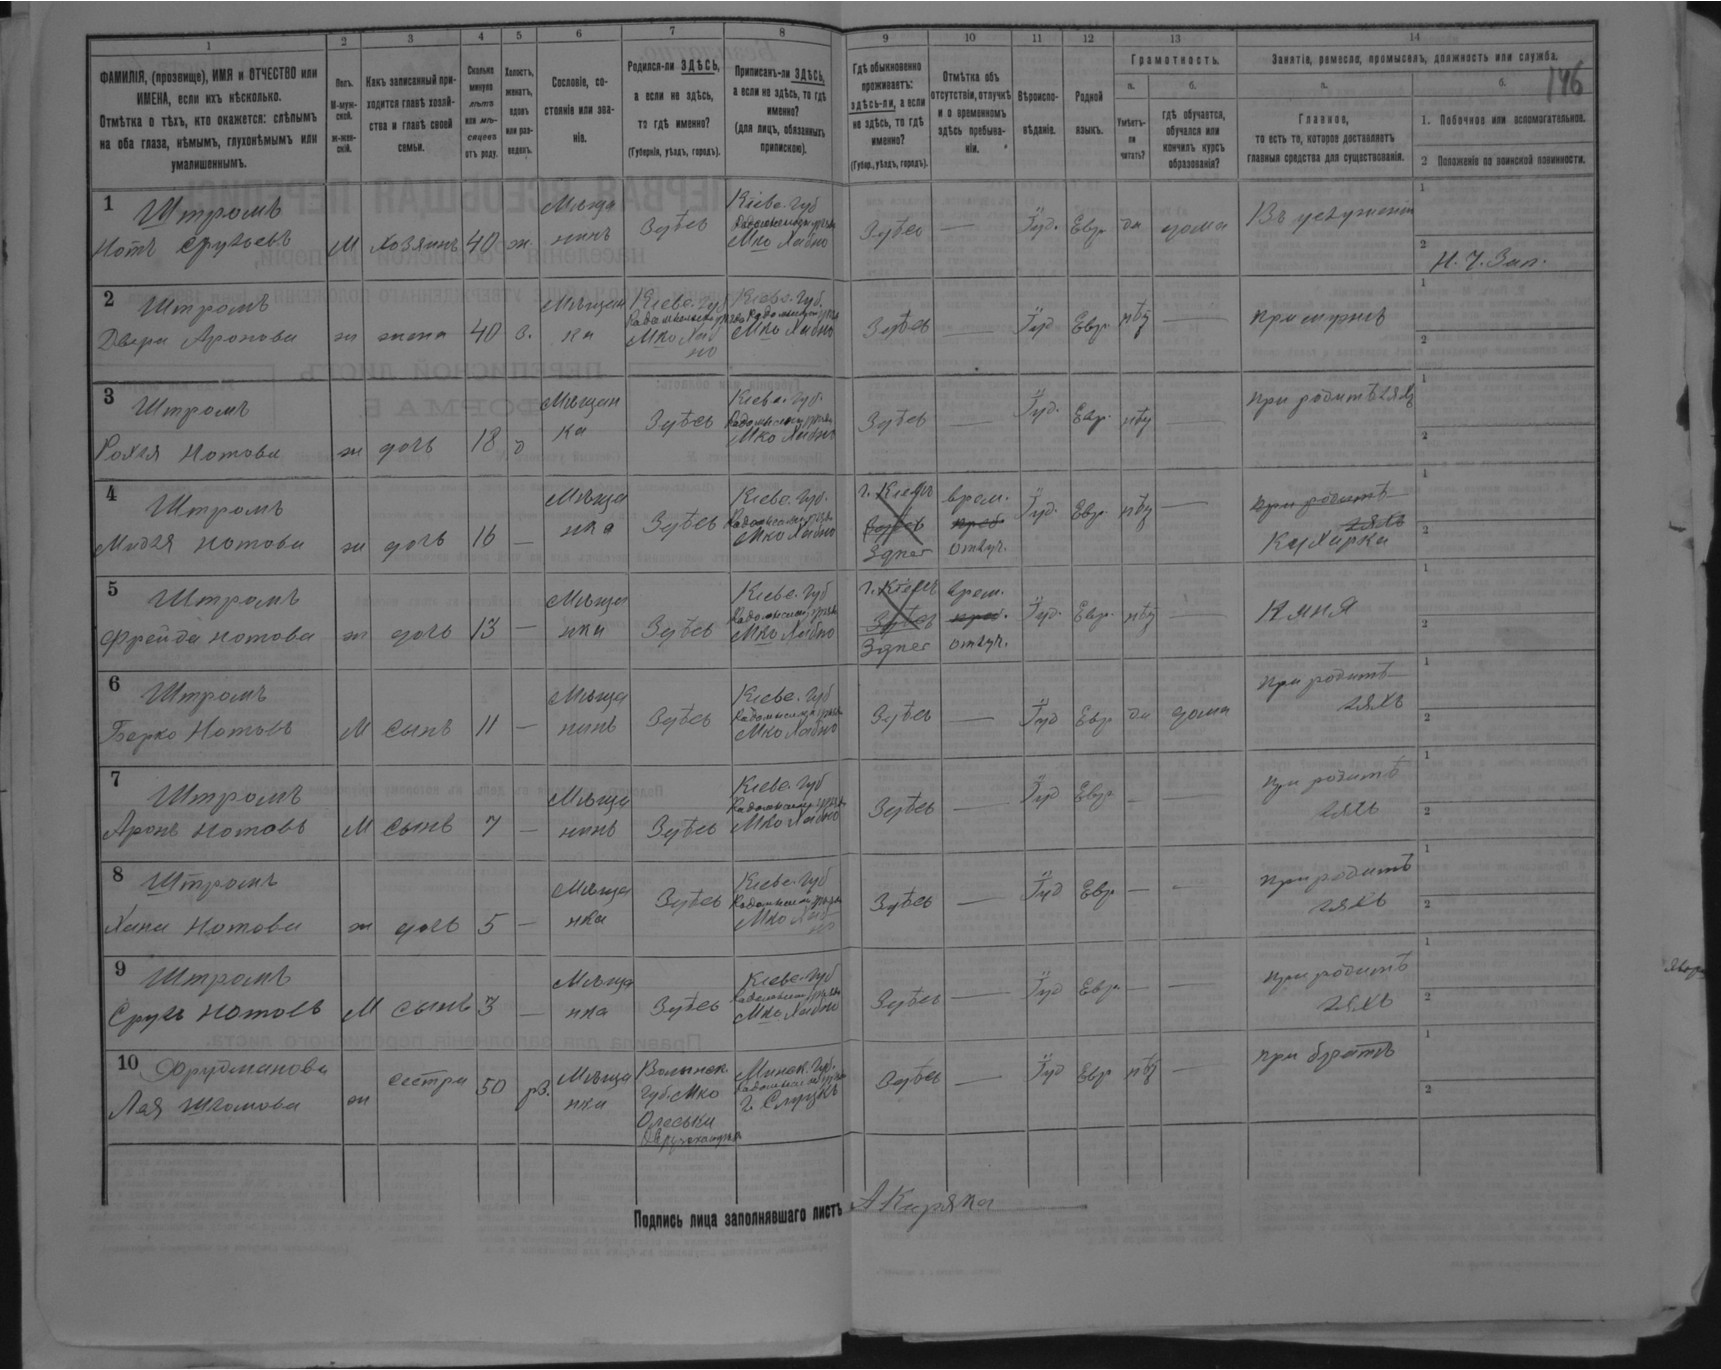 1 2 3 4 5 6 7 8 9 10 11 12 13 14
146
ФАМИЛІЯ, (прозвище), ИМЯ и ОТЧЕСТВО или ИМЕНА, если ихъ нѣсколько.
Отмѣтка о тѣхъ, кто окажется: слѣпымъ на оба глаза, нѣмымъ, глухонѣмымъ или умалишеннымъ.
Полъ.
М-мужской.
ж-женскій.
Какъ записанный приходится главѣ хозяйства и главѣ своей семьи.
Сколько минуло лѣтъ или мѣсяцевъ отъ роду.
Холостъ, женатъ, вдовъ или разведенъ.
Сословіе, состояніе или званіе.
Родился-ли ЗДѢСЬ, а если не здѣсь, то гдѣ именно?
(Губернія, уѣздъ, городъ).
Приписанъ-ли ЗДѢСЬ, а если не здѣсь, то гдѣ именно?
(для лицъ, обязанныхъ припискою).
Гдѣ обыкновенно проживаетъ: здѣсь-ли, а если не здѣсь, то гдѣ именно?
(Губер., уѣздъ, городъ).
Отмѣтка объ отсутствіи, отлучкѣ и о временномъ здѣсь пребываніи.
Вѣроисповѣданіе.
Родной языкъ.
Грамотность.
а.
Умѣетъ-ли читать?
б.
гдѣ обучается, обучался или кончилъ курсъ образованія?
Занятія, ремесло, промыселъ, должность или служба.
а.
Главное,
то есть то, которое доставляетъ главныя средства для существованія.
б.
1. Побочное или вспомогательное.
2 Положеніе по воинской повинности.
1 Штромъ
Нотъ Срульевъ М хозяинъ 40 ж. Мѣщанинъ Здѣсь Кіевс. губ. Радомысльск. уѣзда Мко Хабно Здѣсь — Іуд. Евр. да дома Въ услуженіи
1
2 Н. Ч. Зап.
2 Штромъ
Двера Аронова ж жена 40 з. Мѣщанка Кіевс. губ. Радомысльск. уѣзда Мко Хабно Кіевс. губ. Радомысльск. уѣзда Мко Хабно Здѣсь — Іуд Евр. нѣт — При мужѣ
1
2
3 Штромъ
Рохля Нотова ж дочь 18 д Мѣщанка Здѣсь Кіевс. губ. Радомысльск. уѣзда Мко Хабно Здѣсь Іуд. Евр. нѣт — При родителяхъ
1
2
4 Штромъ
Нотова ж дочь 16 — Мѣщанка Здѣсь Кіевс. губ. Радомысльск. уѣзда Мко Хабно г. Кіевъ Здѣсь Здесь врем. преб. отлуч. Іуд. Евр. нѣт — при родителяхъ Кухарка
1
2
5 Штромъ
Фрейда Нотова ж дочь 13 — Мѣщанка Здѣсь Кіевс. губ Радомысльск. уѣзда Мко Хабно г. Кіевъ Здѣсь Здесь врем. преб. отлуч. Іуд. Евр. нѣт — Няня
1
2
6 Штромъ
Берко Нотовъ М сынъ 11 — Мѣщанинъ Здѣсь Кіевс. губ Радомысльск. уѣзда Мко Хабно Здѣсь — Іуд Евр да дома при родителяхъ
1
2
7 Штромъ
Аронъ Нотовъ М сынъ 7 — Мѣщанинъ Здѣсь Кіевс. губ Радомысльск. уѣзда Мко Хабно Здѣсь — Іуд Евр — — при родителяхъ
1
2
8 Штромъ
Хана Нотова ж дочь 5 — Мѣщанка Здѣсь Кіевс. губ Радомысльск. уѣзда Мко Хабно Здѣсь — Іуд Евр — — при родителяхъ
1
2
9 Штромъ
Сруль Нотовъ М сынъ 3 — Мѣщанка Здѣсь Кіевс. губ Радомысльск. уѣзда Мко Хабно Здѣсь — Іуд Евр — — при родителяхъ
1
2
10 Фрудманова
Лея Шломова ж сестра 50 рз. Мѣщанка Волынск. губ. Мко Олеськи Минск. губ. г. Слуцкъ Здѣсь — Іуд Евр нѣт — при братѣ
1
2
Подпись лица заполнявшаго листъ